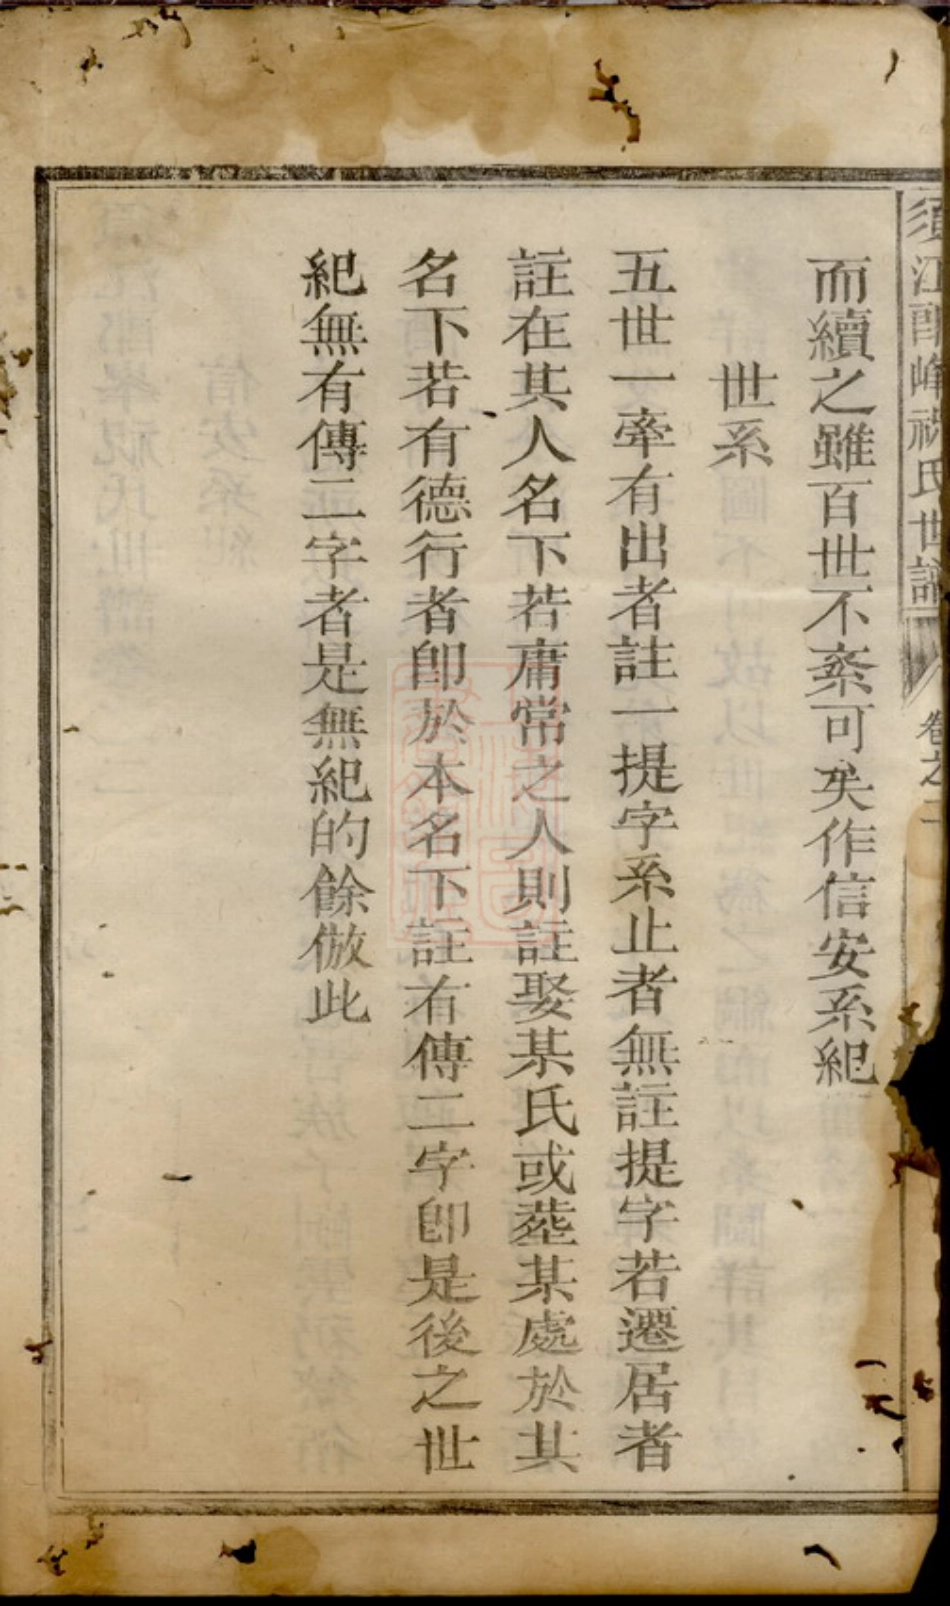 須江郎峰祝氏世譜 卷之一
而續之雖百世不紊可矣作信安系紀
世系
五世一牽有出者註一提字系止者無註提字若遷居者
註在其人名下若庸常之人則註娶某氏或塟某處於其
名下若有德行者卽於本名下註有傳二字卽是後之世
紀無有傳二字者是無紀的餘倣此